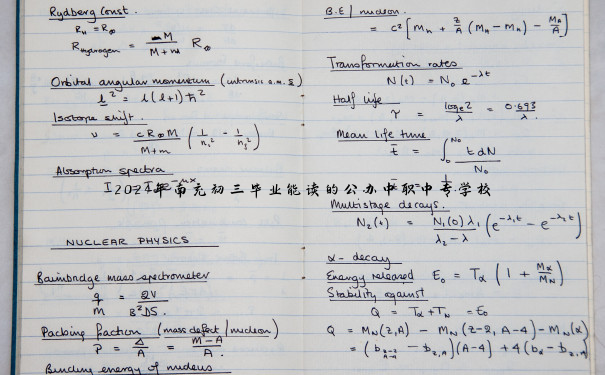 Rydberg Const.
R∞ = R∞
R Hydrogen = M / M+m R∞
Orbital angular momentum (intrinsic a.m. s)
l² = l(l+1)ħ²
Isotope shift.
ν = cR∞M / M+m (1/n₁² - 1/n₂²)
Absorption spectra
2024年南充初三毕业能读的公办中职中专学校
NUCLEAR PHYSICS
Bainbridge mass spectrometer
q/m = 2V / B²DS.
Packing fraction (mass defect / nucleon)
P = Δ/A = M-A / A.
Binding energy of nucleus
B.E / nucleon.
= c² [Mn + Z/A (MH - Mn) - MA/A]
Transformation rates
N(t) = N₀ e^-λt
Half life
τ = loge2 / λ = 0.693 / λ.
Mean life time
t̄ = ∫₀^N₀ t dN / N₀
Multistage decays.
N₂(t) = N₁(0) λ₁ / λ₂ - λ (e^-λ₁t - e^-λ₂t)
α - decay
Energy released E₀ = Tα (1 + Mα/MN)
Stability against
Q = Tα + TN = E₀
Q = MN(Z,A) - MN(Z-2, A-4) - MN(α)